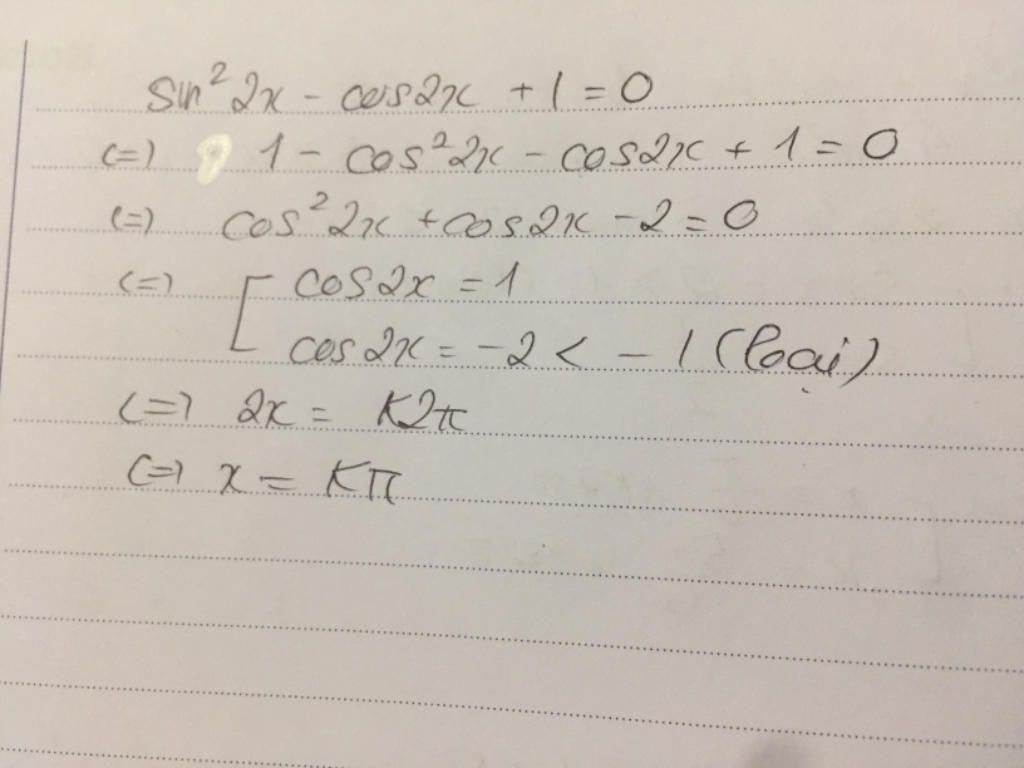 sin² 2x - cos2x + 1 = 0
(=) 1 - cos² 2x - cos2x + 1 = 0
(=) cos² 2x + cos2x - 2 = 0
(=) [ cos2x = 1
cos2x = -2 < -1 (loại)
(=) 2x = K2π
(=) x = Kπ